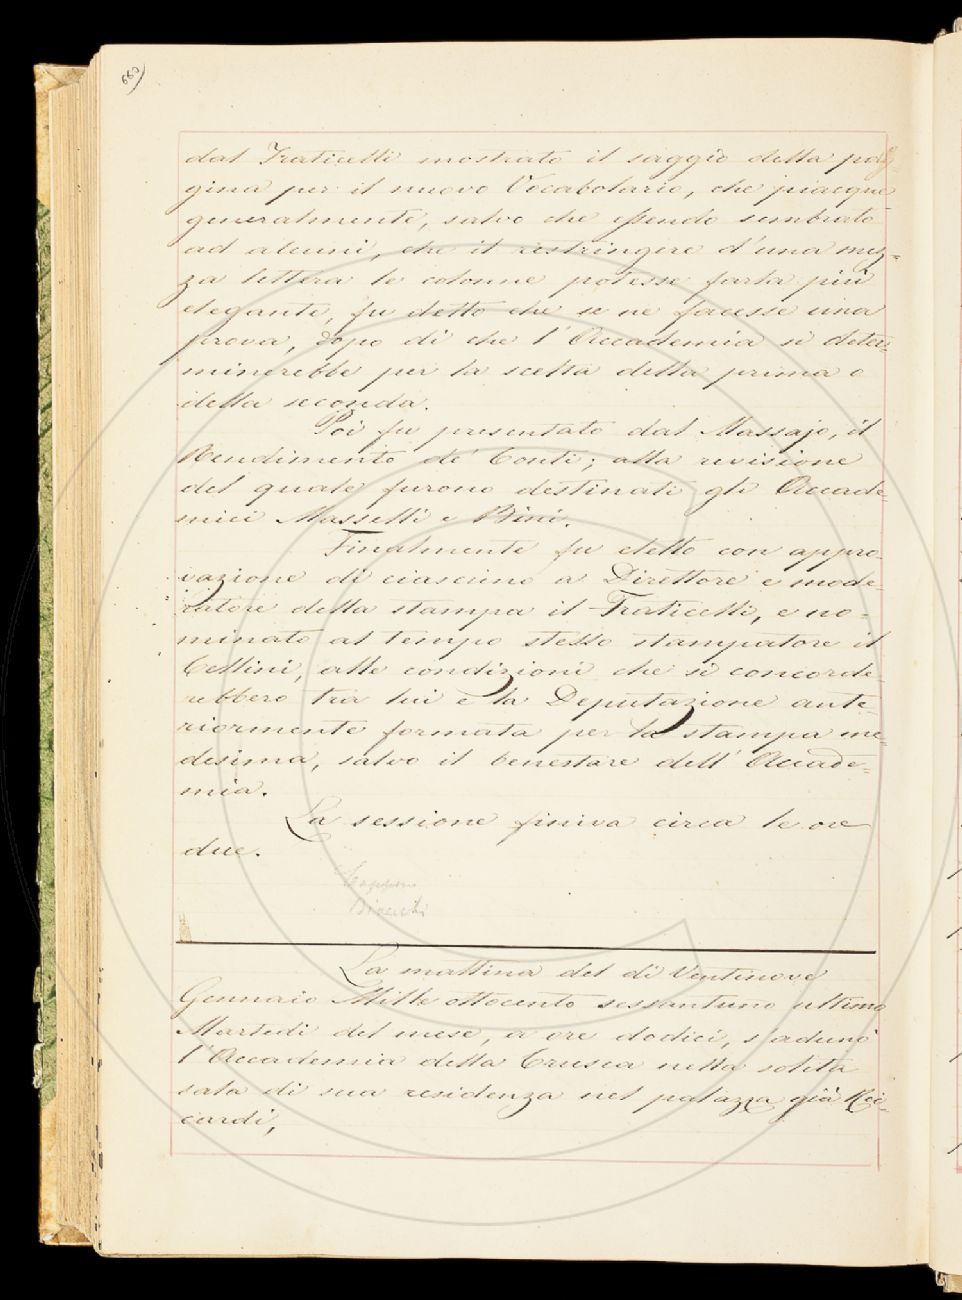 660
dal Fraticelli mostrato il saggio della pa-
gina per il nuovo Vocabolario, che piacque
generalmente, salvo che essendo sembrato
ad alcuni, che il restringere d'una mez=
za lettera le colonne potesse farla più
elegante, fu detto che se ne facesse una
prova, dopo di che l'Accademia si deter=
minerebbe per la scelta della prima o
della seconda.
Poi fu presentato dal Massajo, il
Rendimento de' Conti; alla revisione
del quale furono destinati gli Accade=
mici Masselli e Bini.
Finalmente fu eletto con appro-
vazione di ciascuno a Direttore e mode-
ratore della stampa il Fraticelli, e no-
minato al tempo stesso stampatore il
Cellini, alle condizioni che si concorde-
rebbero tra lui e la Deputazione ante-
riormente formata per la stampa me-
desima, salvo il benestare dell'Accade=
mia.
La sessione finiva circa le ore
due.
La mattina del dì Ventinove
Gennaio Mille ottocento sessantuno ultimo
Martedì del mese, a ore dodici, s'adunò
l'Accademia della Crusca nella solita
sala di sua residenza nel palazzo già Ric-
cardi,